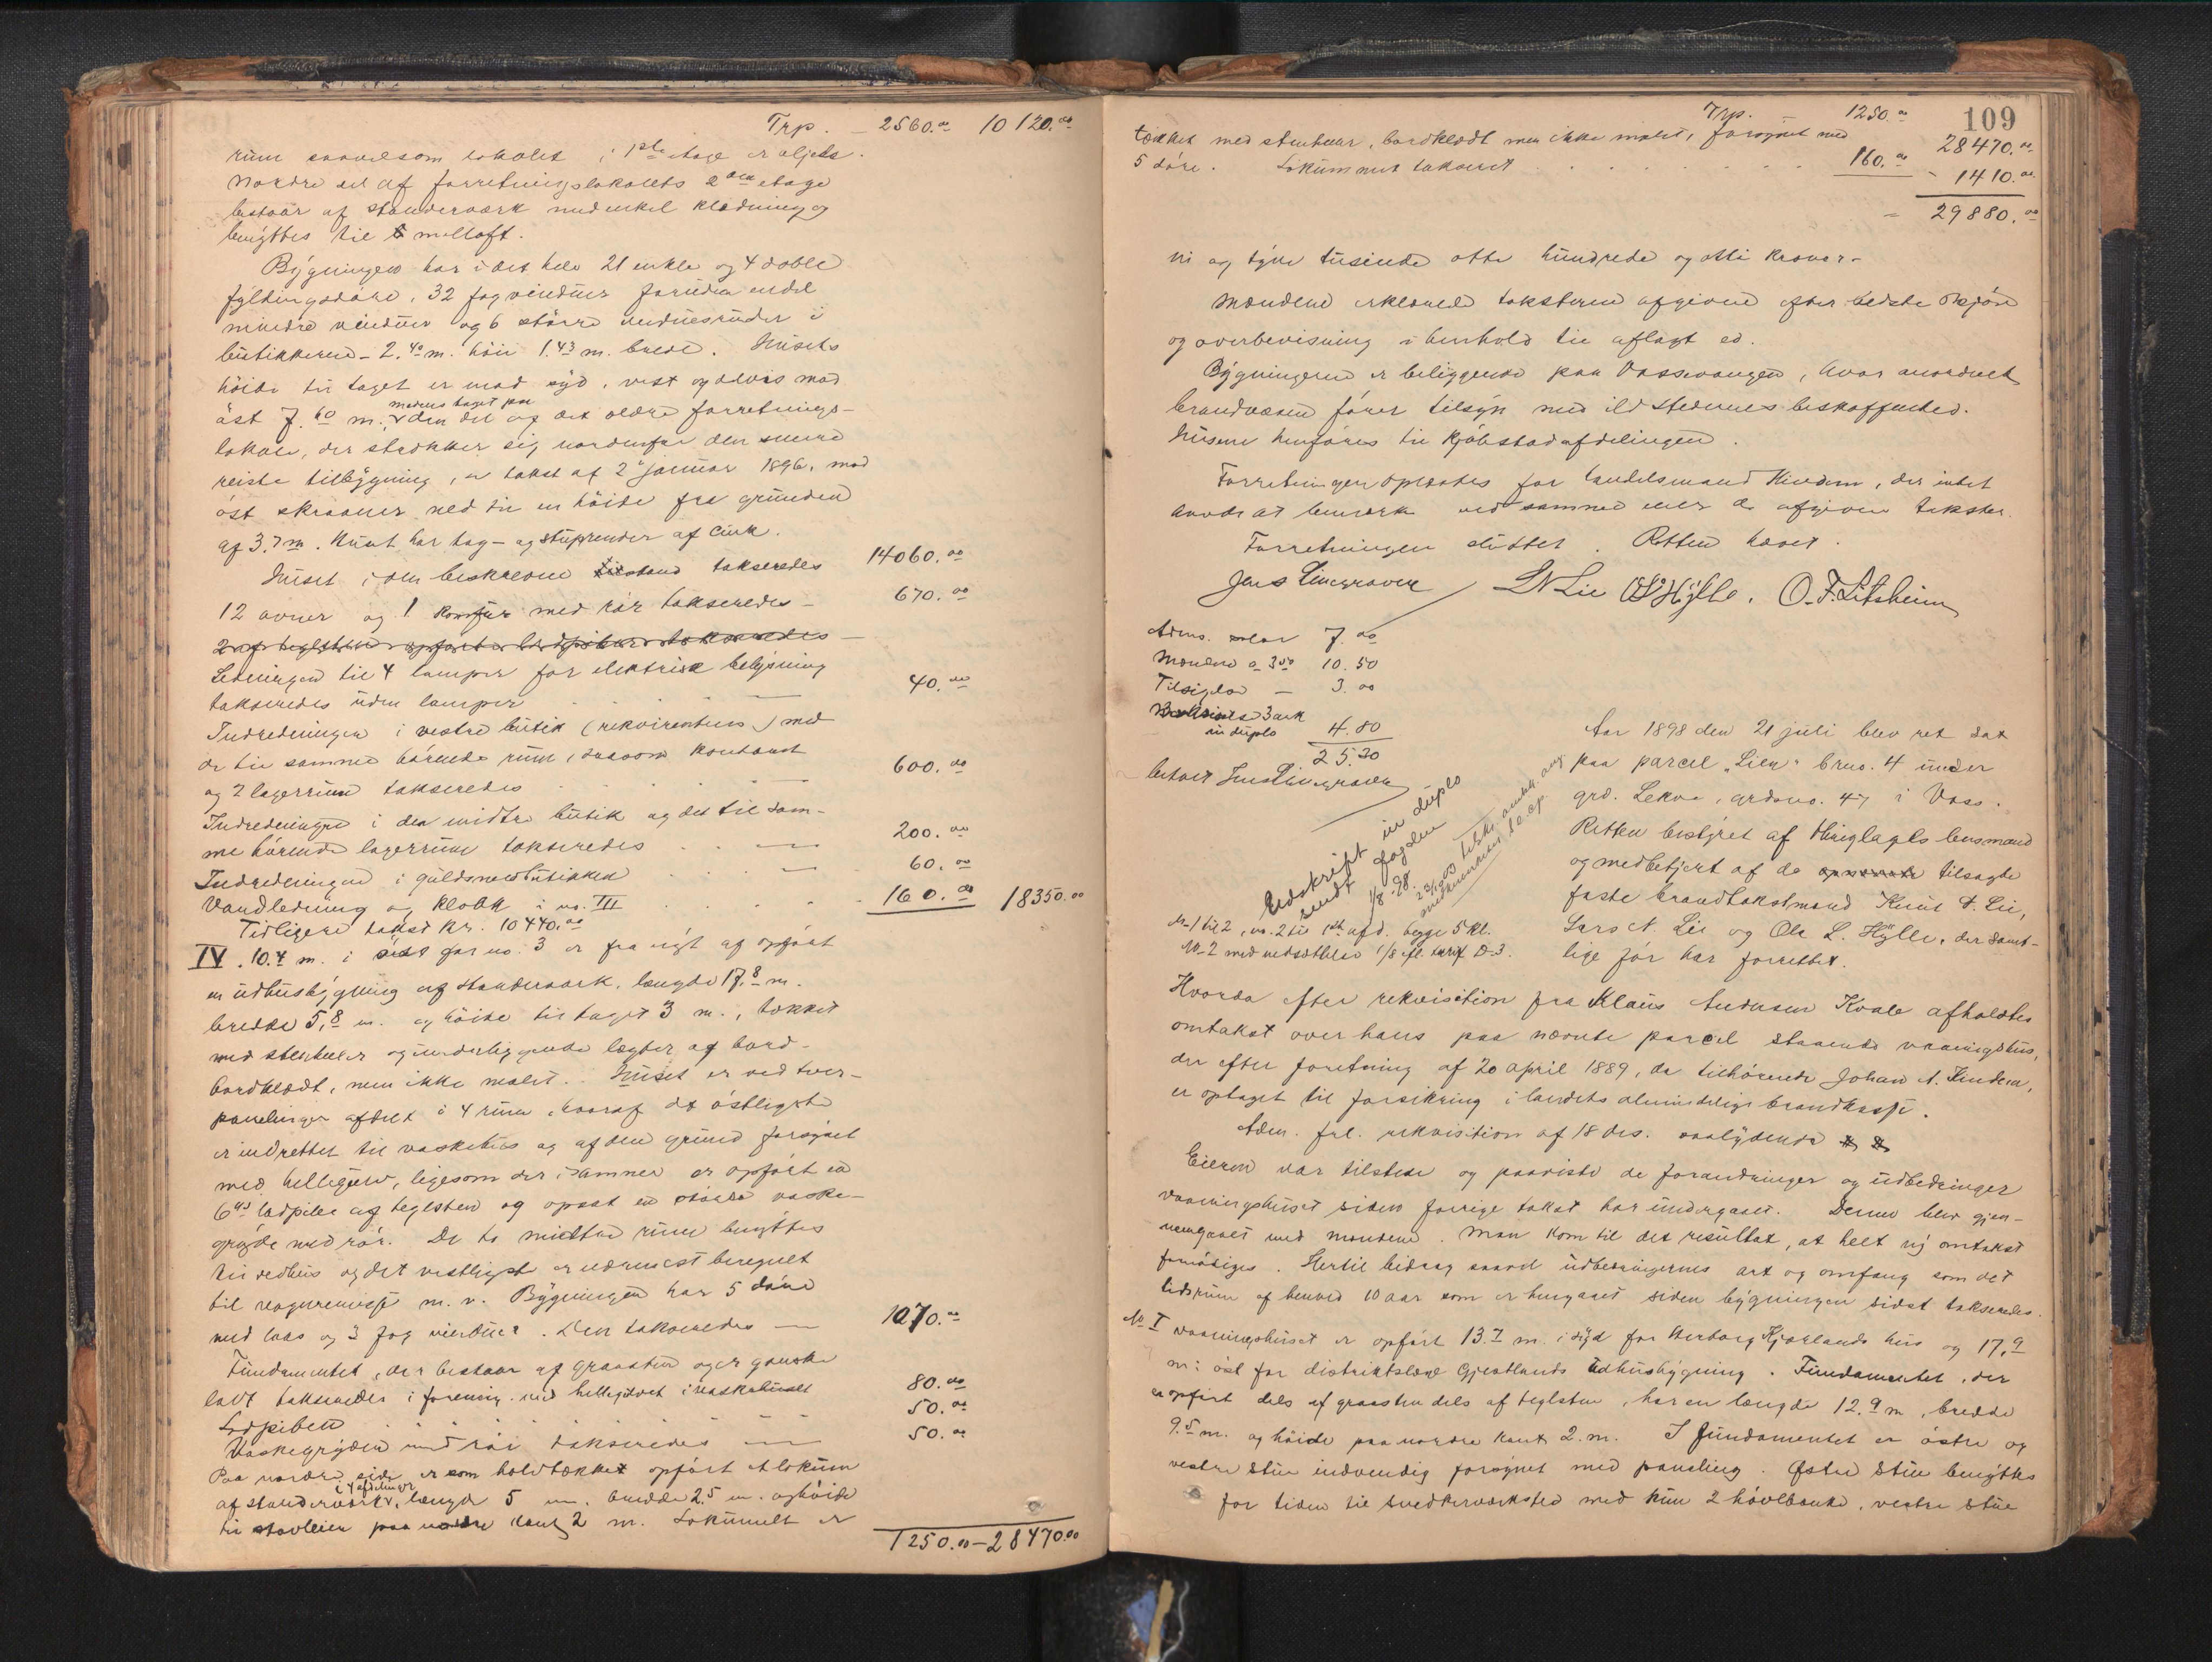 Trp. – 2560.00 10120.00
rum saavelsom lokalet i 1ste etage er oljet.
Nordre del af forretningslokalets 2den etage
bestaar af stenderværk med enkel klædning og
benyttes til melloft.
Bygningen har i det hele 21 enkle og 4 doble
fyldingsdöre, 32 fag vinduer foruden endel
mindre vinduer og 6 större vinduesruder i
butikkerne – 2.40 m. höie 1.43 m. brede. Husets
höide til taget er mod syd, vest og delvis mod
öst 7.60 m., medens taget paa den del af det ældre forretnings-
lokale, der strækker sig nordenfor den senere
reiste tilbygning, se takst af 2 januar 1896, mod
öst skraaner ned til en höide fra grunden
af 3.7 m. Huset har tag- og stuprender af zink.
Huset i den beskrevne stand takseredes 14060.00
12 ovner og 1 komfür med rör takseredes – 670.00
2 af teglsten opförte ladpiber takseredes –
Ledningen til 4 lamper for elektrisk belysning
takseredes uden lamper – 40.00
Indredningen i vestre butik (rekvirentens) med
de til samme hörende rum, saasom kontoret
og 2 lagerrum takseredes – 600.00
Indredningen i den midtre butik og det til sam-
me hörende lagerrum takseredes – 200.00
Indredningen i guldsmedbutikken – 60.00
Vandledning og klokk i no. III 160.00 18350.00
Tidligere takst kr. 10440.00
IV. 10.4 m. i öst for no. 3 er fra nyt af opfört
en udhusbygning af stenderværk, længde 17.8 m.
bredde 5,8 m. og höide til taget 3 m., tækket
med stenheller og underliggende lægter af bord-
bordklædt, men ikke malet. Huset er ved tver-
panelinger afdelt i 4 rum, hvoraf det östligste
er indrettet til vaskehus og af den grund forsynet
med hellegulv, ligesom der i samme er opfört en
6" ladpibe af teglsten og opsat en större vaske-
gryde med rör. De to midtre rum benyttes
til vedhus og det vestligste er nærmest beregnet
til vognremisse m. v. Bygningen har 5 döre
med laas og 3 fag vinduer. Den takseredes – 1070.00
Fundamentet, der bestaar af graasten og er ganske
lavt takseredes i forening med hellegulvet i vaskehuset 80.00
Ladpiben 50.00
Vaskegryden med rör takseredes – 50.00
Paa nordre side er som holdtækket opfört et lokum
af stenderværk i 4 afdelinger, længde 5 m. bredde 2.5 m. og höide
til stavleien paa nordre kant 2 m. Lokumet er
1250.00 – 28470.00
109
Trp. – 1250.00
28470.00
tækket med stenheller, bordklædt men ikke malet, forsynet med
5 döre. Lokummet takseret 160.00 – 1410.00
= 29880.00
ni og tyve tusinde otte hundrede og otti kroner-
Mændene erklærede taksterne afgivne efter bedste skjön
og overbevisning i henhold til aflagt ed.
Bygningerne er beliggende paa Vossevangen, hvor anordnet
brandvæsen förer tilsyn med ildstedernes beskaffenhed.
Husene henföres til kjöbstadafdelingen.
Forretningen oplæstes for handelsmand Hindum, der intet
havde at bemærke ved samme eller de afgivne takster.
Forretningen sluttet. Retten hævet.
Jens Lilegraven L N Lie O L Hylle. O. F. Litsheim
Adms. salær 7.00
Mændene a 350 10.50
Tilsigelse – 3.00
3 ark
in duplo 4.80
25.30
betalt Jens Lilegraven
Udskrift in duplo
sendt fogden
1/8-98.
No. 1 til 2, no. 2 til 1ste afd. begge 5 kl.
No. 2 med nedsættelse 1/8 efl. tarif D.3.
Aar 1898 den 21 juli blev ret sat
paa parcel „Lien“ brno. 4 under
grd. Lekve, grdsno. 47 i Voss.
Retten bestyret af thinglagets lensmand
og medbetjent af de opnævnte tilsagte
faste brandtakstmænd Knut L. Lie,
Lars N. Lie og Ole L. Hylle, der samt-
lige för har forrettet.
Hvorda efter rekvisition fra Klaus Andersen Kvale afholdtes
omtakst over hans paa nævnte parcel staaende vaaningshus,
der efter forretning af 20 april 1889, da tilhörende Johan N. Kindem,
er optaget til forsikring i landets almindelige brandkasse.
Adm. frl. rekvisition af 18 ds. saalydende # #
Eieren var tilstede og paaviste de forandringer og udbedringer
vaaningshuset siden forrige takst har undergaaet. Denne blev gjen-
nemgaaet med mændene. Man kom til det resultat, at helt ny omtakst
fornödiges. Hertil bidrog saavel udbedringernes art og omfang som det
tidsrum af henved 10 aar som er hengaaet siden bygningen sidst takseredes.
No I vaaningshuset er opfört 13.7 m. i syd for Herborg Kjærlands hus og 17.9
m. i öst for distriktslæge Gjestlands udhusbygning. Fundamentet, der
er opfört dels af graasten dels af teglsten, har en længde 12.9 m, bredde
9.5 m. og höide paa nordre kant 2 m. I fundamentet er östre og
vestre stue indvendig forsynet med paneling. Östre stue benyttes
for tiden til snedkerværksted med kun 2 hövlbænke, vestre stue